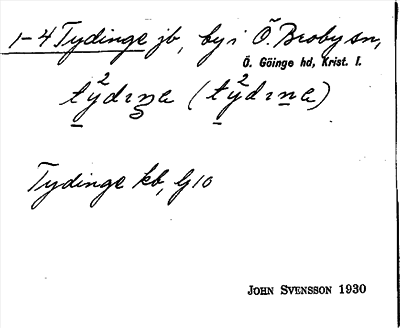 1-4 Tydinge jb, by i Ö. Broby sn,
Ö. Göinge hd, Krist. l.
ty²dıŋa (ty²dına)
Tydinge kb, G10
JOHN SVENSSON 1930